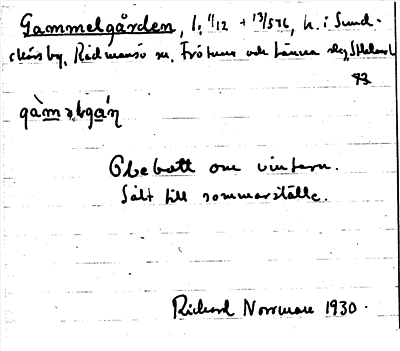 Gammelgården, 1. 1/12 + 13/576, h. i Sund-
by, Rådmansö sn, Frötuna och Länna slg, Sthlms l
93
gàməlgán
Obebott om vintern.
Sålt till sommarställe.
Richard Norrman 1930.